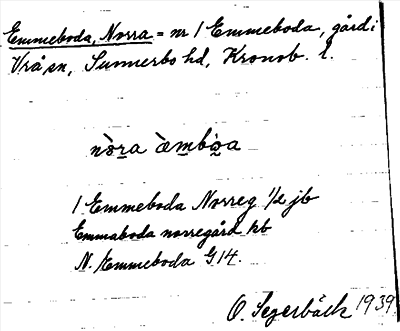 Emmeboda, Norra = nr 1 Emmeboda, gård i
Vrå sn, Sunnerbo hd, Kronob. l.
nò̱ra æ̀m̱bo̱a
1 Emmeboda Norreg ½ jb
Emmaboda norregård hb
N. Emmeboda G14.
O. Segerbäck 1939